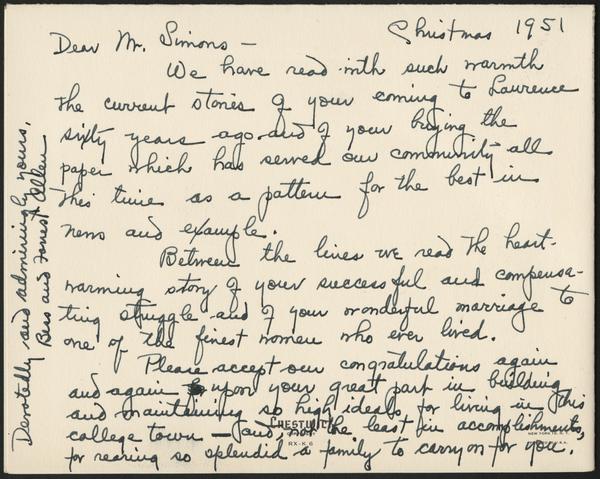 Christmas 1951
Dear Mr. Simons —
We have read with such warmth
the current stories of your coming to Lawrence
sixty years ago and of your buying the
paper which has served our community all
this time as a pattern for the best in
news and example.
Between the lines we read the heart-
warming story of your successful and compensa-
ting struggle and of your wonderful marriage to
one of the finest women who ever lived.
Please accept our congratulations again
and again upon your great part in building
and maintaining so high ideals for living in this
college town — and, not the least in accomplishments,
for rearing so splendid a family to carry on for you.
Devotedly and admiringly yours,
Bess and Forrest Allen
CHESTNUT
RX-K 6
NEW YORK